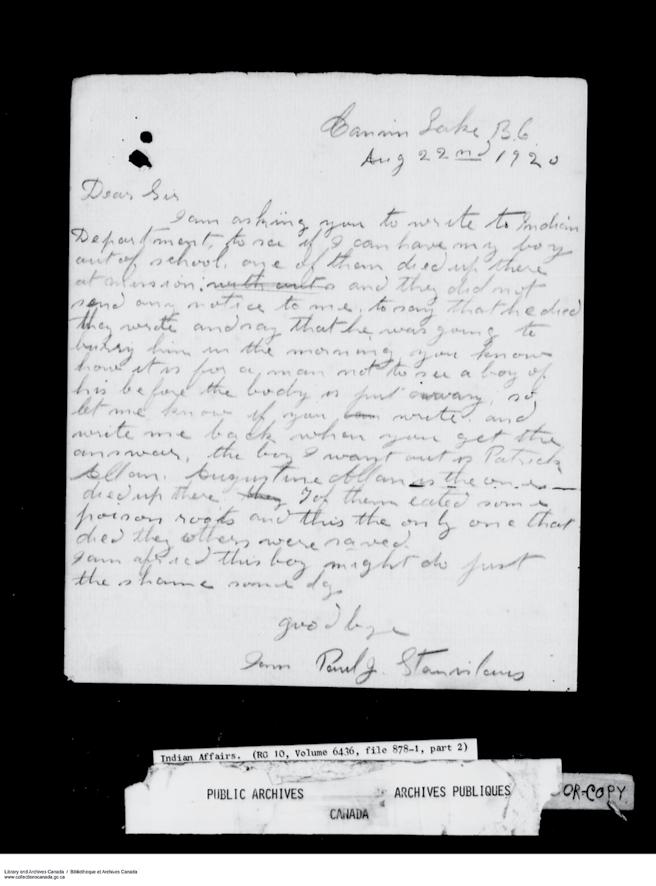 Canim Lake B.C.
Aug 22nd 1920
Dear Sir
I am asking you to write to Indian
Department, to see if I can have my boy
out of school. one of them died up there
at mission, with out and they did not
send any notice to me, to say that he died
they wrote and say that he was going to
burry him in the morning, you know
how it is for a man not to see a boy of
his before the body is put away, so
let me know if you write. and
write me back when you get the
answear, the boy I want out is Patrick
Allan. Augustine Allan is the one is
died up there 7 of them eated some
poison roots and this the only one that
died they others were saved.
I am afried this boy might do just
the shame some day
good bye
Paul J. Stanislaus
Indian Affairs. (RG 10, Volume 6436, file 878-1, part 2)
PUBLIC ARCHIVES ARCHIVES PUBLIQUES
CANADA
OR-COPY
Library and Archives Canada / Bibliothèque et Archives Canada
www.collectionscanada.gc.ca